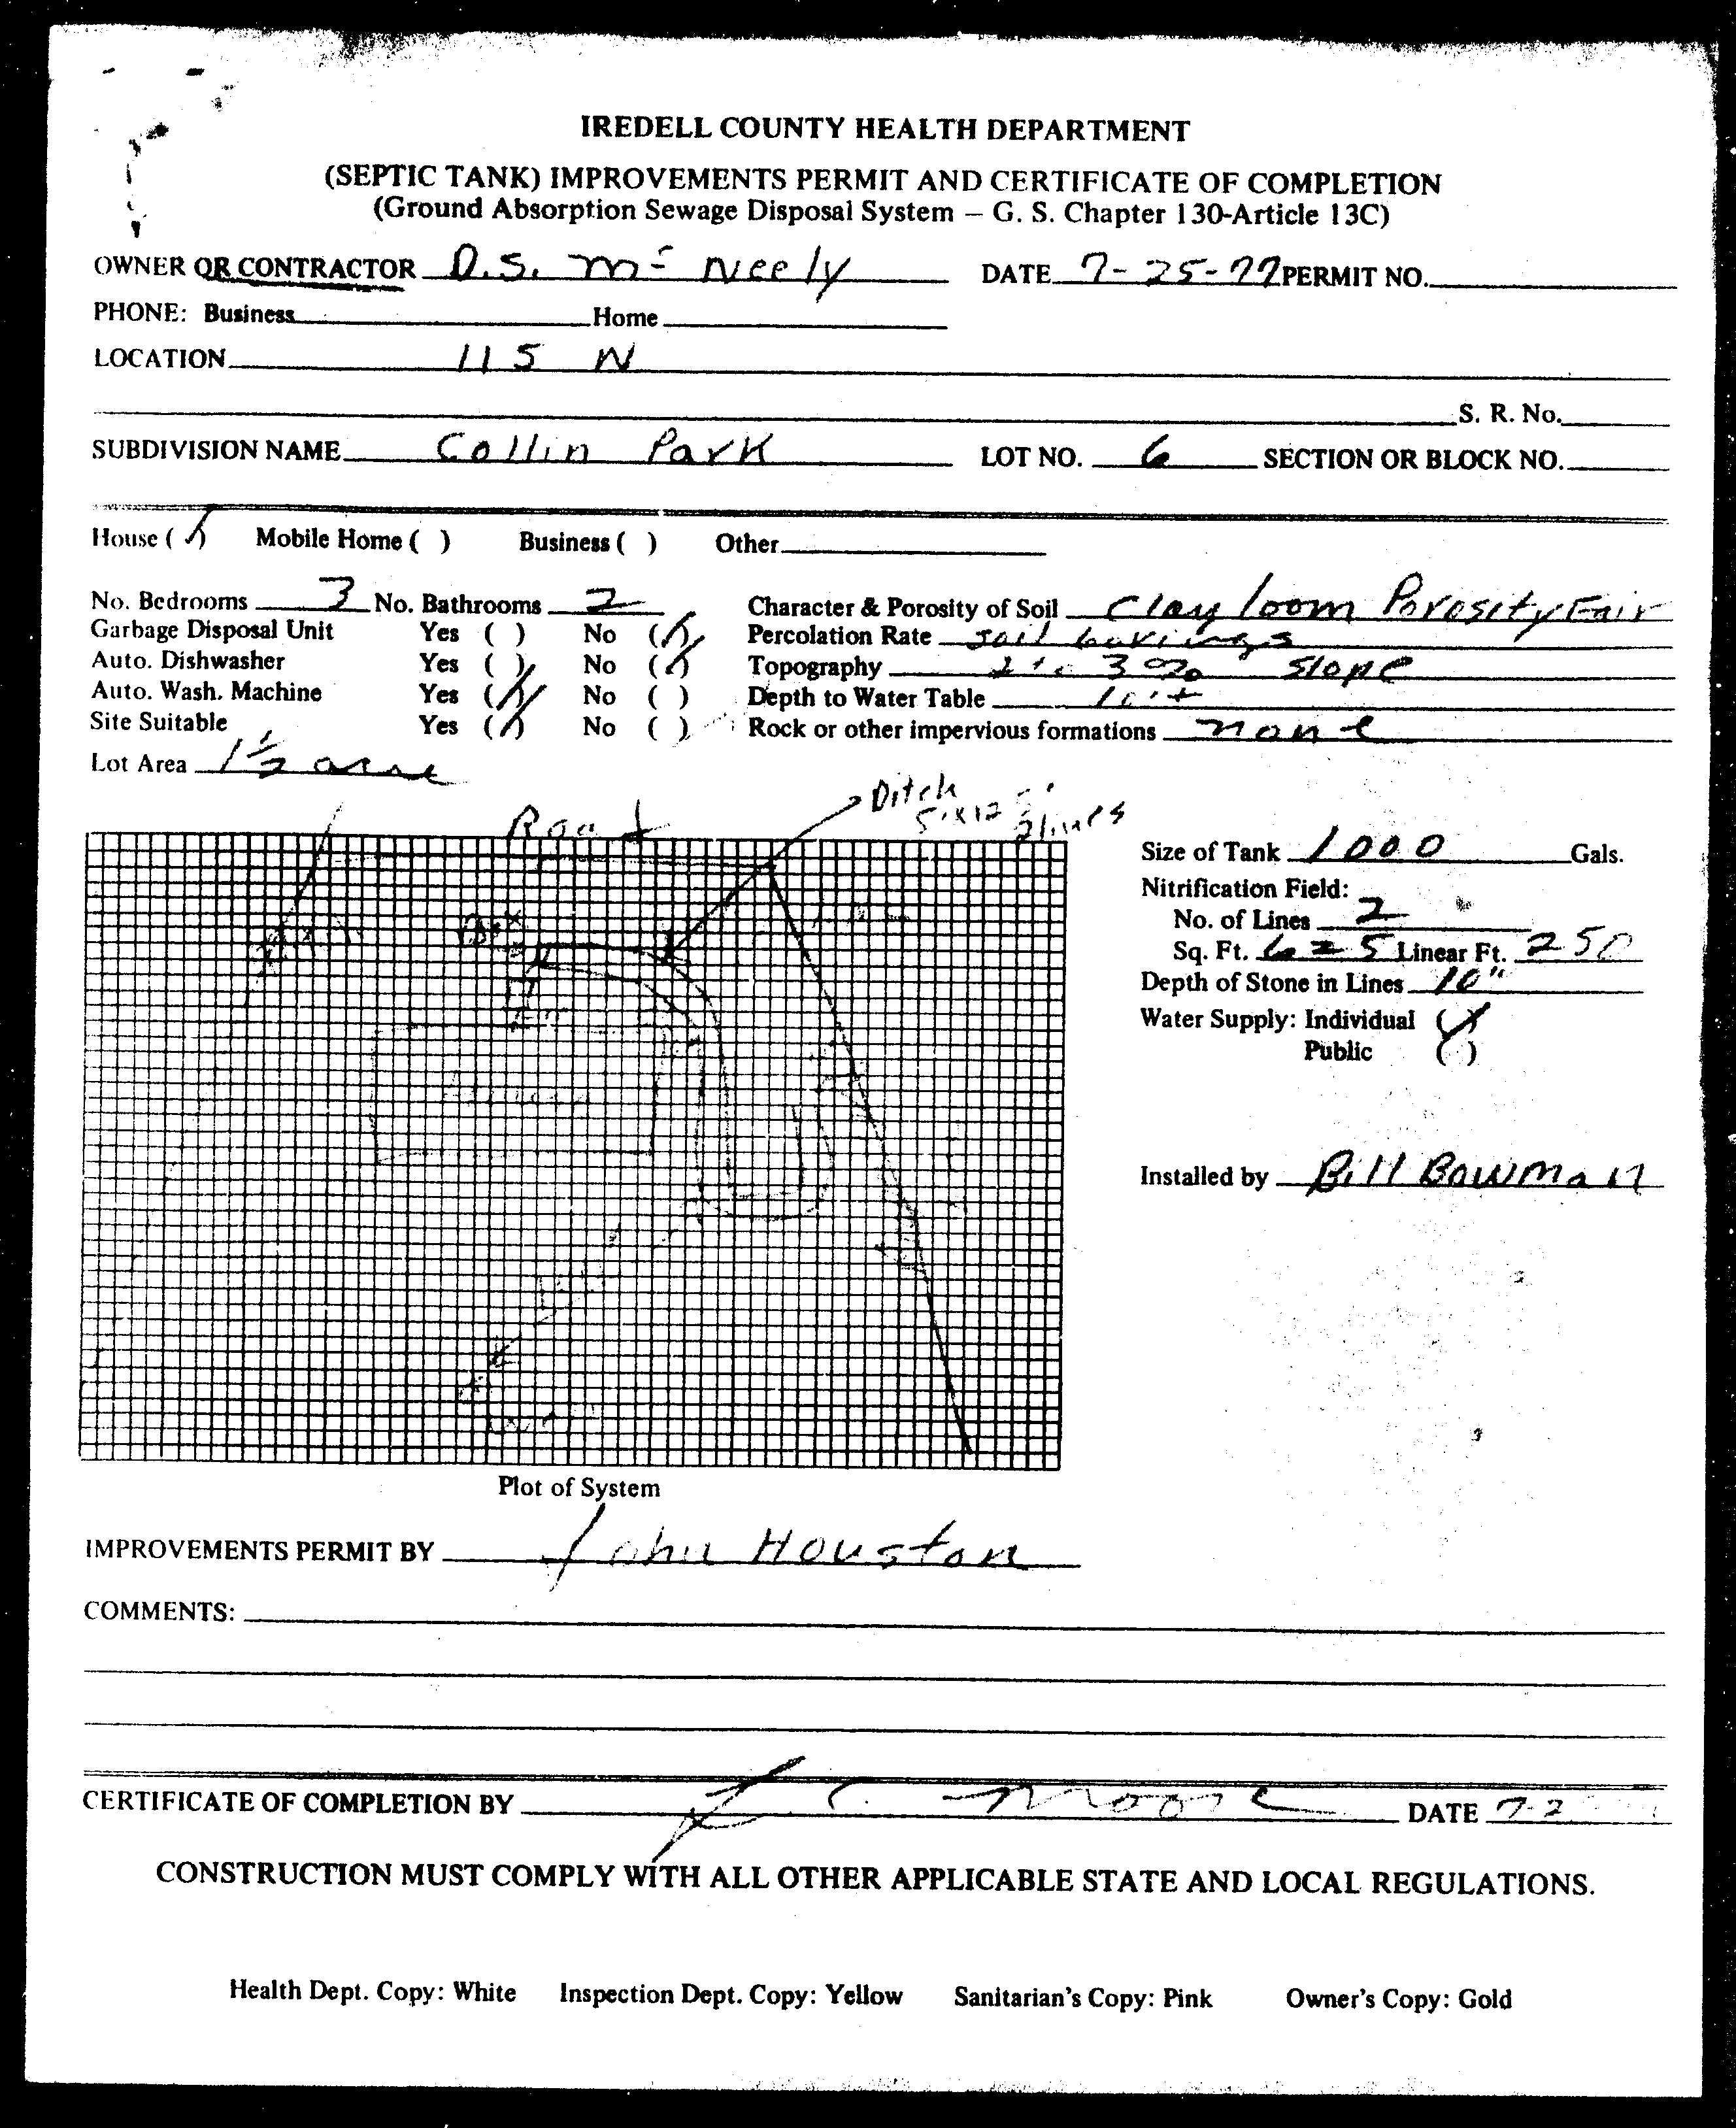 IREDELL COUNTY HEALTH DEPARTMENT
(SEPTIC TANK) IMPROVEMENTS PERMIT AND CERTIFICATE OF COMPLETION
(Ground Absorption Sewage Disposal System – G. S. Chapter 130-Article 13C)
OWNER OR CONTRACTOR D.S. Mc Neely DATE 7-25-77 PERMIT NO.
PHONE: Business Home
LOCATION 115 N
S. R. No.
SUBDIVISION NAME Collin Park LOT NO. 6 SECTION OR BLOCK NO.
House (✓) Mobile Home ( ) Business ( ) Other
No. Bedrooms 3 No. Bathrooms 2 Character & Porosity of Soil Clay loom Porosity Fair
Garbage Disposal Unit Yes ( ) No (✓) Percolation Rate soil borings
Auto. Dishwasher Yes ( ) No (✓) Topography 2 to 3% slope
Auto. Wash. Machine Yes (✓) No ( ) Depth to Water Table
Site Suitable Yes (✓) No ( ) Rock or other impervious formations none
Lot Area 1 1/2 acre
Ditch
Road 2 lines
Size of Tank 1000 Gals.
Nitrification Field:
No. of Lines 2
Sq. Ft. 625 Linear Ft. 250
Depth of Stone in Lines 10"
Water Supply: Individual (✓)
Public ( )
Installed by Bill Bowman
Plot of System
IMPROVEMENTS PERMIT BY John Houston
COMMENTS:
CERTIFICATE OF COMPLETION BY L. C. Moore DATE 7-2
CONSTRUCTION MUST COMPLY WITH ALL OTHER APPLICABLE STATE AND LOCAL REGULATIONS.
Health Dept. Copy: White Inspection Dept. Copy: Yellow Sanitarian's Copy: Pink Owner's Copy: Gold